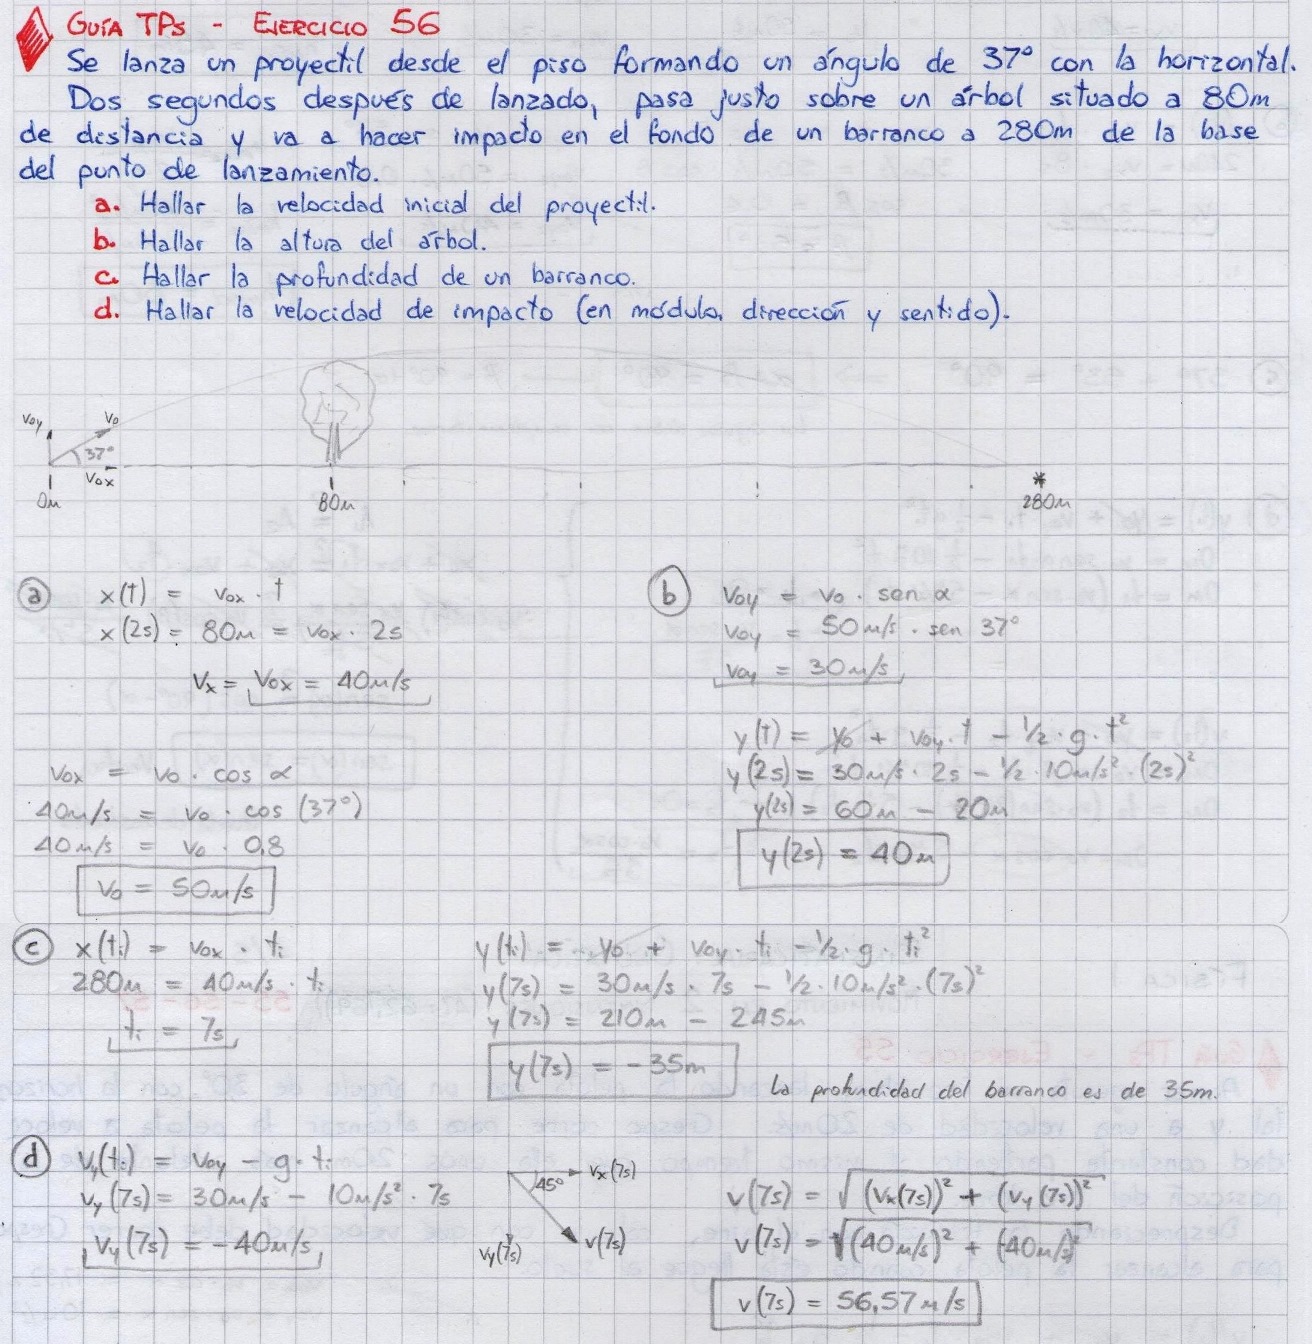 GUÍA TPs - EJERCICIO 56
Se lanza un proyectil desde el piso formando un ángulo de 37° con la horizontal.
Dos segundos después de lanzado, pasa justo sobre un árbol situado a 80m
de distancia y va a hacer impacto en el fondo de un barranco a 280m de la base
del punto de lanzamiento.
a. Hallar la velocidad inicial del proyectil.
b. Hallar la altura del árbol.
c. Hallar la profundidad de un barranco.
d. Hallar la velocidad de impacto (en módulo, dirección y sentido).
Voy V0
37°
Vox
0m 80m 280m
a x(t) = vox · t
x(2s) = 80m = vox · 2s
Vx = Vox = 40m/s
vox = vo · cos α
40m/s = vo · cos (37°)
40m/s = vo · 0,8
Vo = 50m/s
b Voy = vo · sen α
voy = 50m/s · sen 37°
voy = 30m/s
y(t) = yo + voy · t - 1/2 · g · t²
y(2s) = 30m/s · 2s - 1/2 · 10m/s² · (2s)²
y(2s) = 60m - 20m
y(2s) = 40m
c x(ti) = vox · ti
280m = 40m/s · ti
ti = 7s
y(ti) = yo + voy · ti - 1/2 · g · ti²
y(7s) = 30m/s · 7s - 1/2 · 10m/s² · (7s)²
y(7s) = 210m - 245m
y(7s) = -35m
La profundidad del barranco es de 35m.
d Vy(ti) = voy - g · ti
vy(7s) = 30m/s - 10m/s² · 7s
Vy(7s) = -40m/s
45° Vx(7s)
Vy(7s) v(7s)
v(7s) = √(vx(7s))² + (vy(7s))²
v(7s) = √(40m/s)² + (-40m/s)²
v(7s) = 56,57m/s